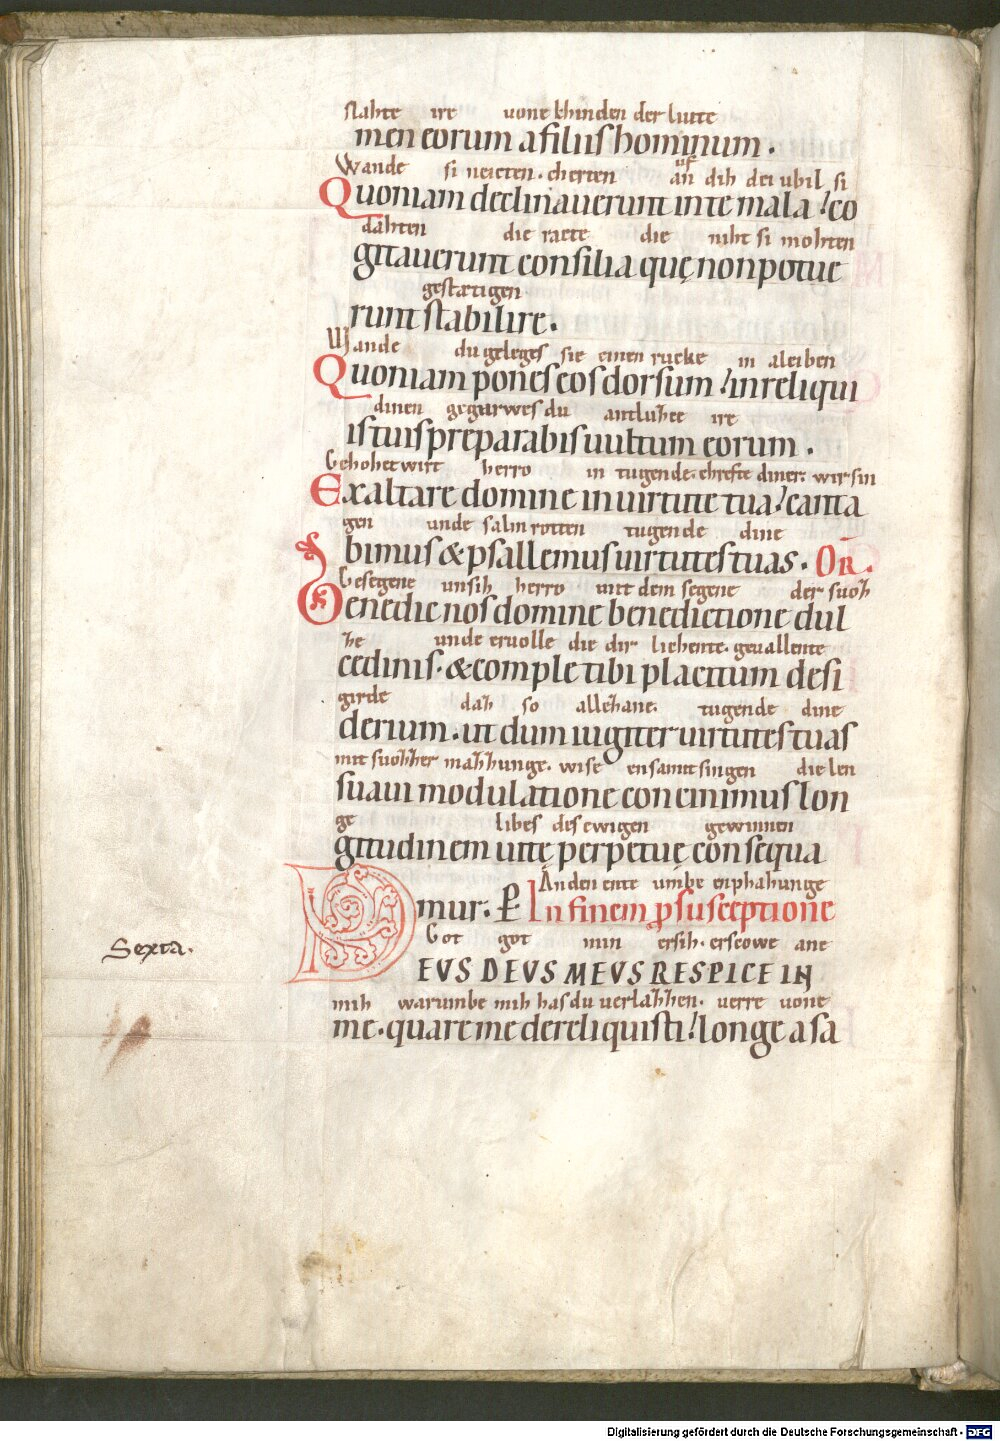 slahte ire uone khinden der liute
men eorum a filiis hominum.
Wande si neicten. cherten uf an dih dei ubil si
Quoniam declinauerunt in te mala / co
dahten die raete die niht si mohten
gitauerunt consilia quę non potue
gestætigen
runt stabilire.
Wande du geleges sie einen rucke in aleiben
Quoniam pones eos dorsum / in reliqui
dinen gegarwes du antluhce ire
is tuis preparabis uultum eorum.
Gehohet wirt herro in tugende. chrefte diner. wir sin
Exaltare domine in uirtute tua / canta
gen unde salmrotten tugende dine
bimus & psallemus uirtutes tuas. OR.
Gesegene unsih herro mit dem segene der suoh
Benedic nos domine benedictione dul
he unde eruolle die dir liehente. geuallente
cedinis. & comple tibi placitum desi
girde dah so allehane. tugende dine
derium. ut dum iugiter uirtutes tuas
mit suohher mahhunge. wise ensamt singen die len
suaui modulatione concinimus lon
ge libes des ewigen gewinnen
gitudinem uitę perpetuę consequa
An den ente umbe enphahunge
mur. In finem p susceptione
Got got min ersih. erscowe ane
Sexta.
DEVS DEVS MEVS RESPICE IN
mih warumbe mih has du uerlahhen. uerre uone
me. quare me dereliquisti / longe a sa
Digitalisierung gefördert durch die Deutsche Forschungsgemeinschaft - DFG